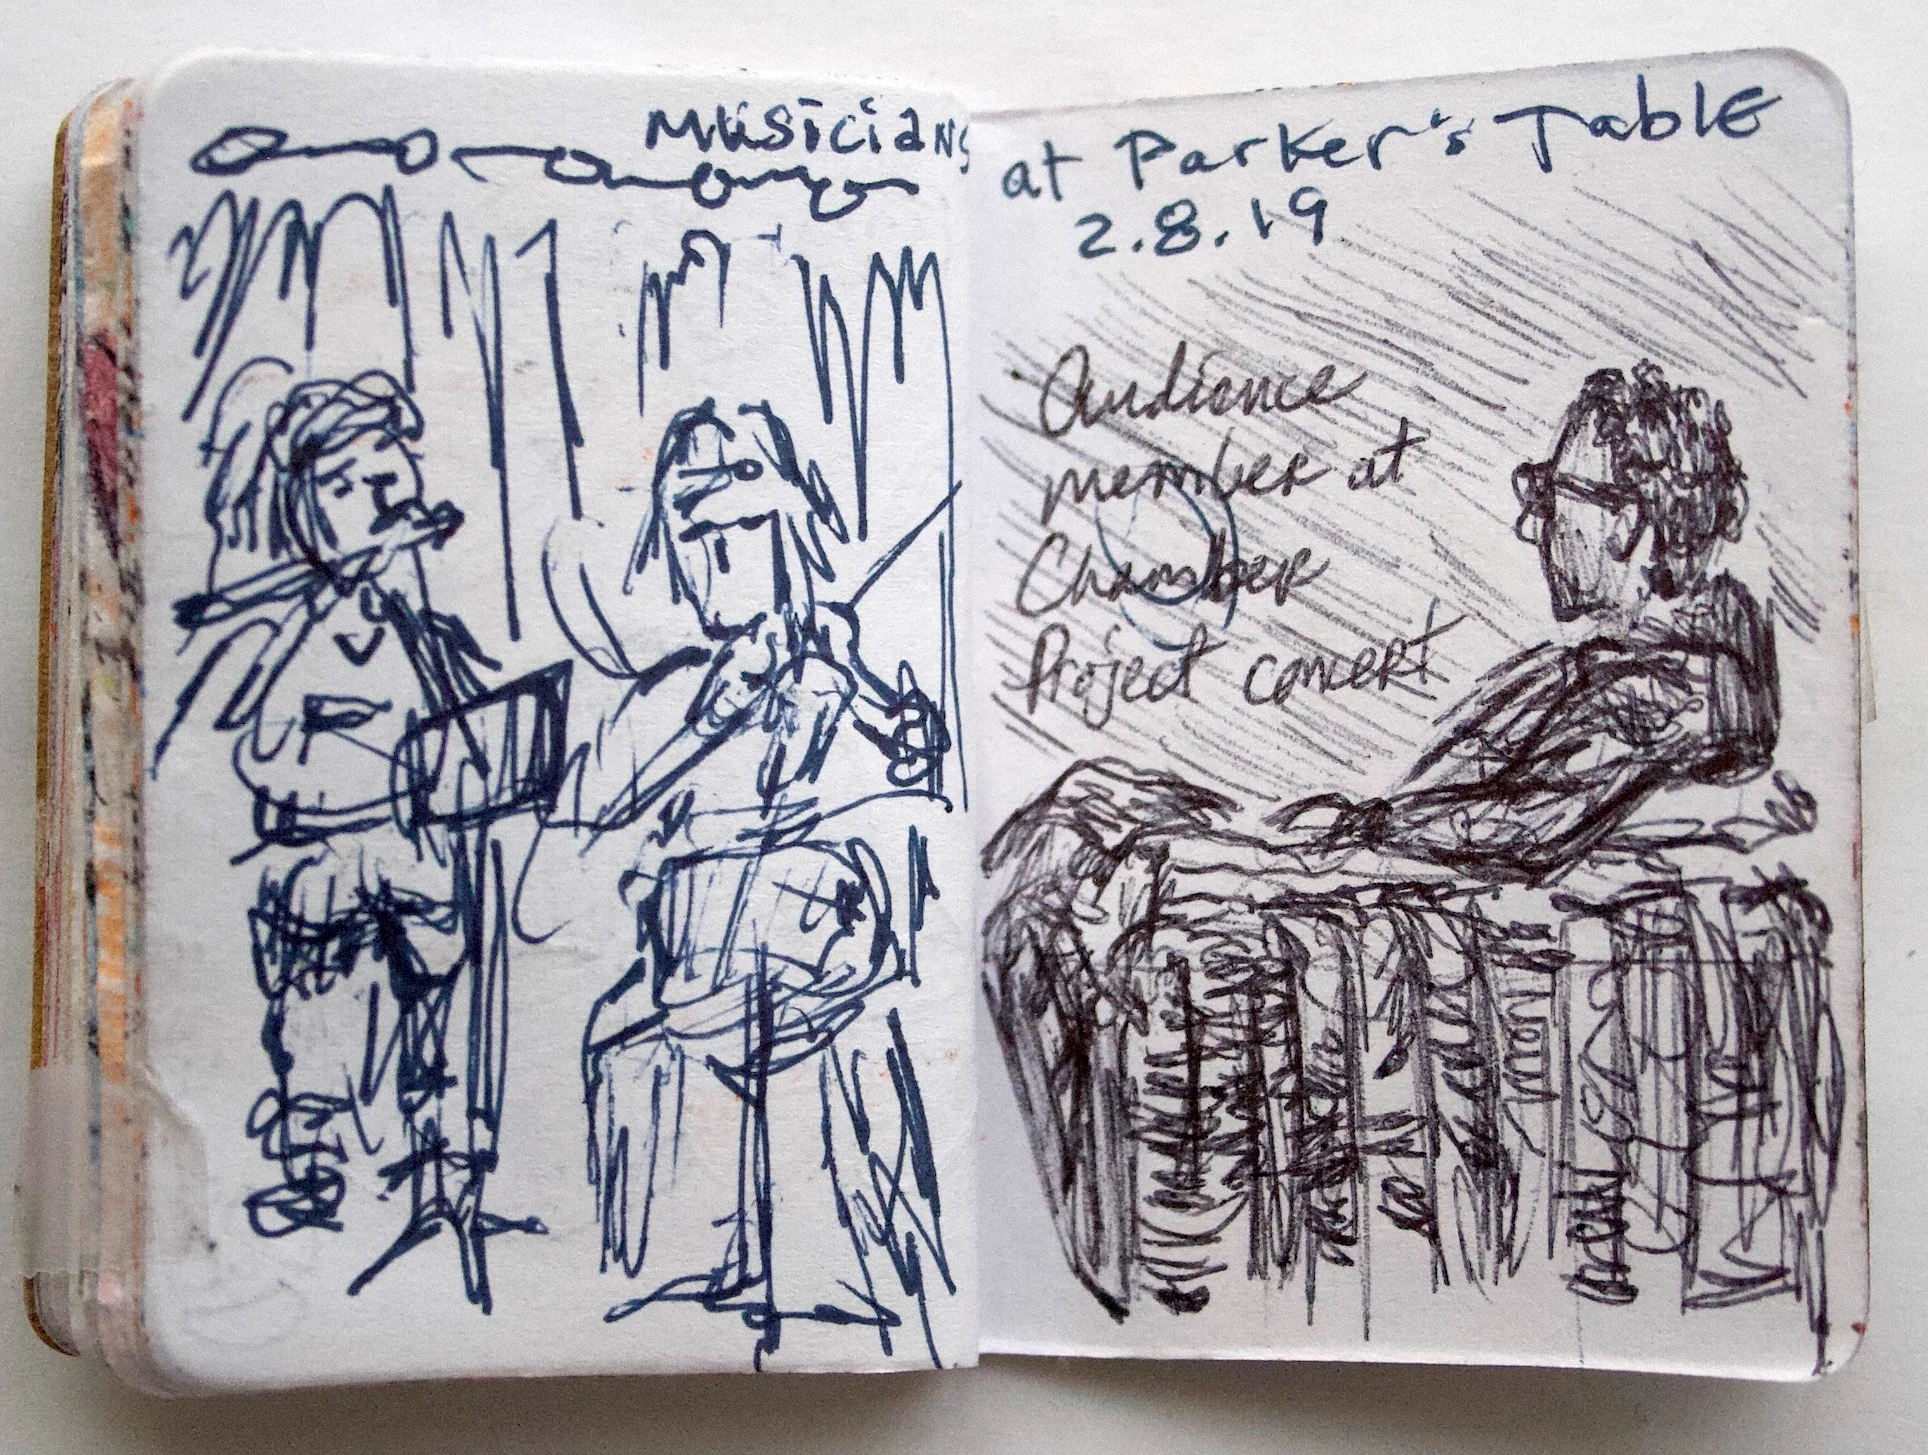 Musicians at Parker's Table
2.8.19
Audience
member at
Chamber
Project concert